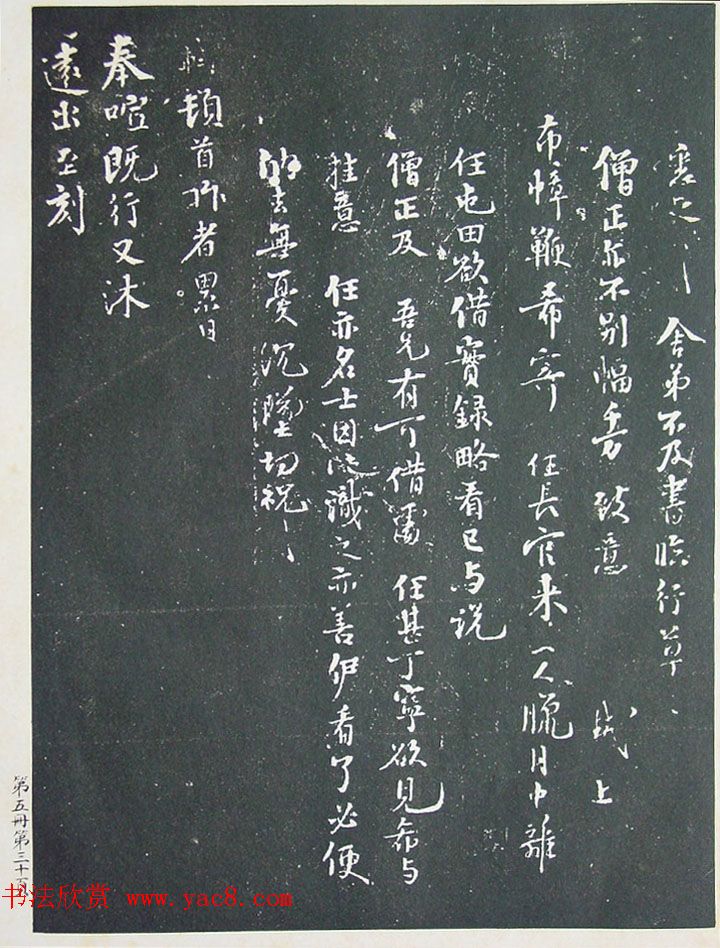 舍弟不及書臨行草〻
僧正亦不別幅多方致意 軾上
布幛鞭希寄 任長官來人臘月中離
任屯田欲借寶錄略看已与说
僧正及 吾兄有可借處 任甚丁寧欲見希与
挂意 任亦名士因此識之亦善伊看了必便
納去無憂沉墜切祝〻
軾頓首 昨者累日
奉喧既行又沐
遠出至刻
第五冊第三十
书法欣赏 www.yac8.com